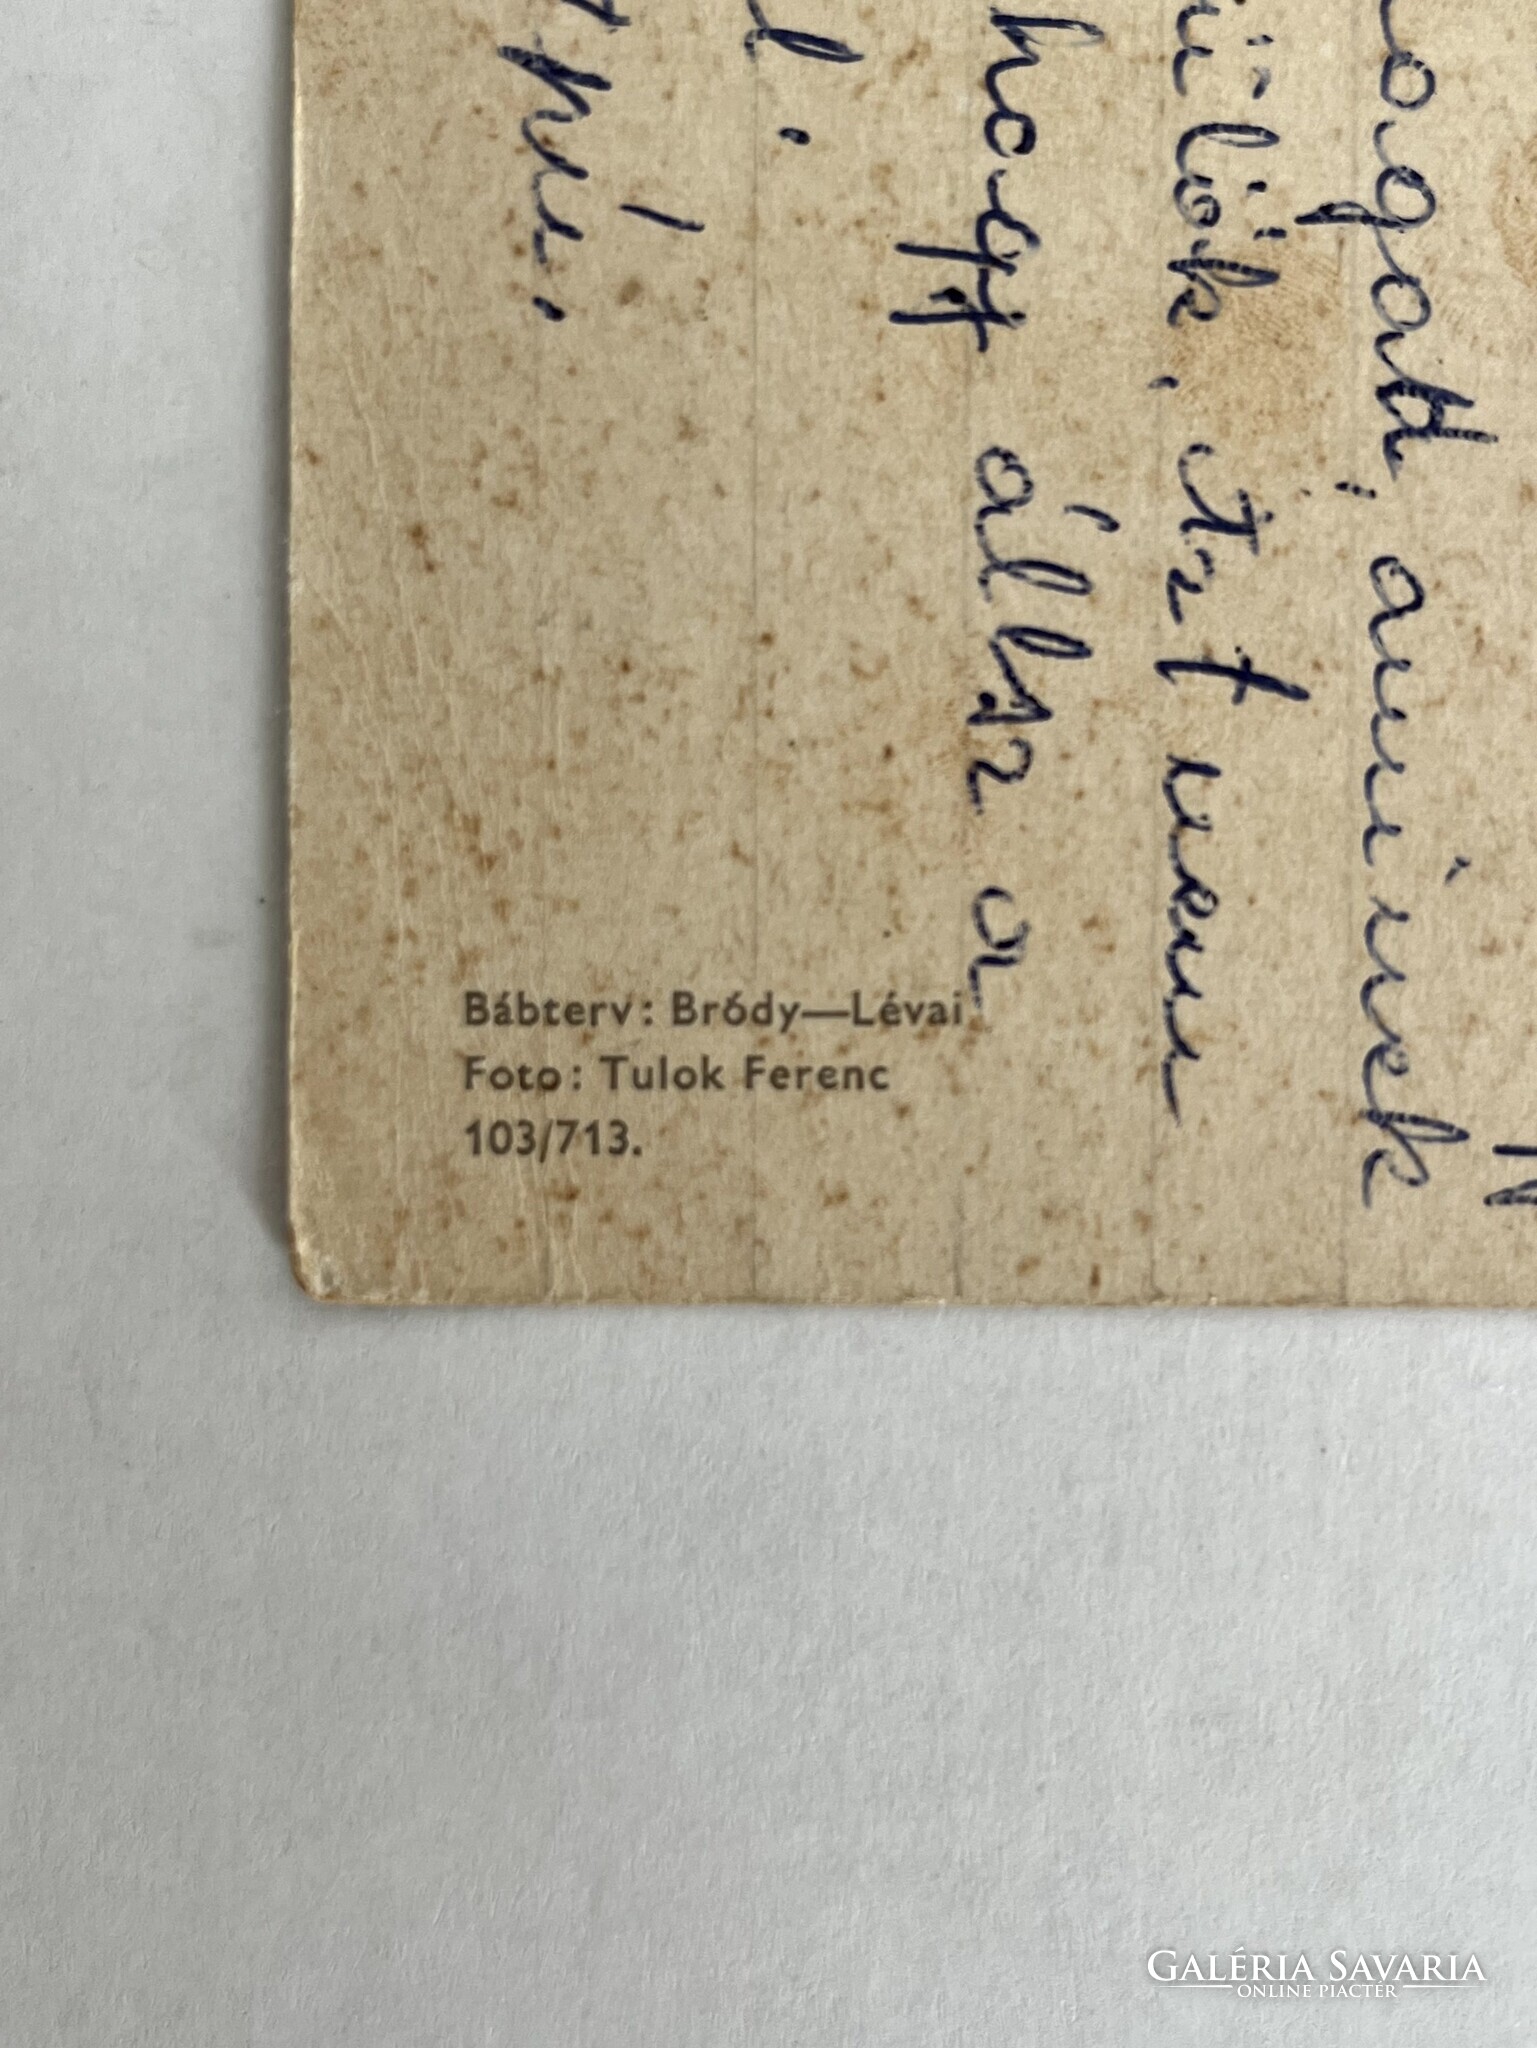 ogatt, aminek
ülök. Azt nem
hogy állsz a
Bábterv: Bródy—Lévai
Foto: Tulok Ferenc
103/713.
GALÉRIA SAVARIA
ONLINE PIACTÉR